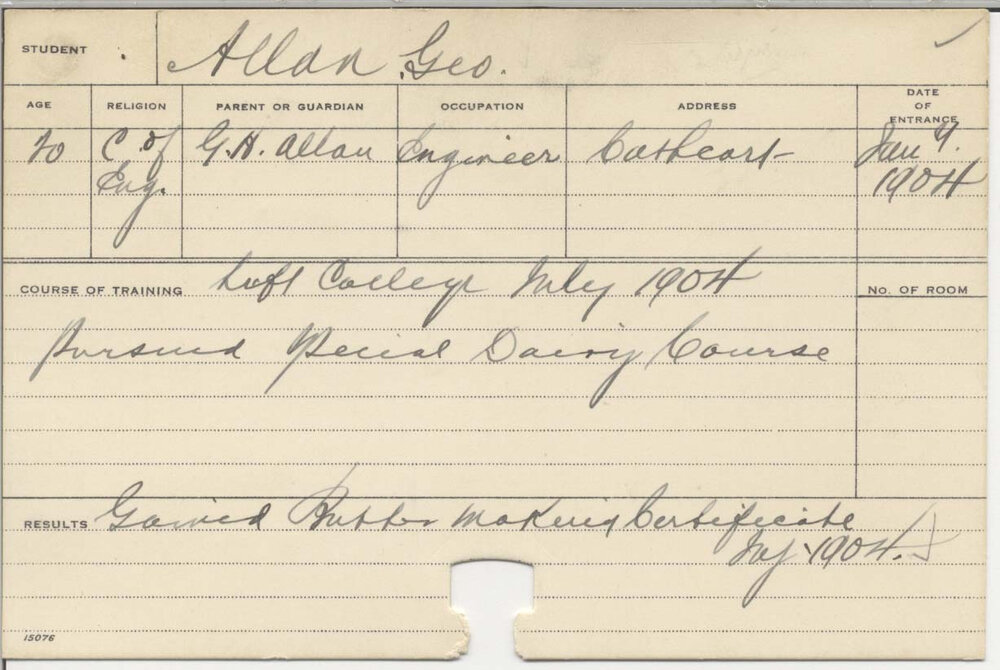 STUDENT Allan, Geo.
AGE RELIGION PARENT OR GUARDIAN OCCUPATION ADDRESS DATE OF ENTRANCE
20 C. of Eng. G.H. Allan Engineer Cathcart Jan 9. 1904
COURSE OF TRAINING Left College July 1904
No. OF ROOM
Pursued Special Dairy Course
RESULTS Gained Butter Making Certificate
1904.
15076